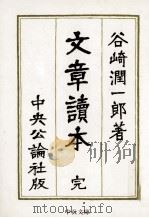 谷崎潤一郎著
文章讀本 完
中央公論社版
中公文庫